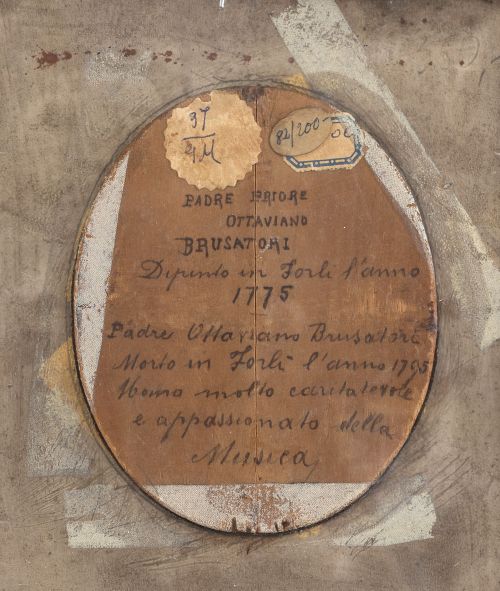 37
4M
82/200-
PADRE PRIORE
OTTAVIANO
BRUSATORI
Dipinto in Forlì l'anno
1775
Padre Ottaviano Brusatori
Morto in Forlì l'anno 1795
Uomo molto caritatevole
e appassionato della
Musica